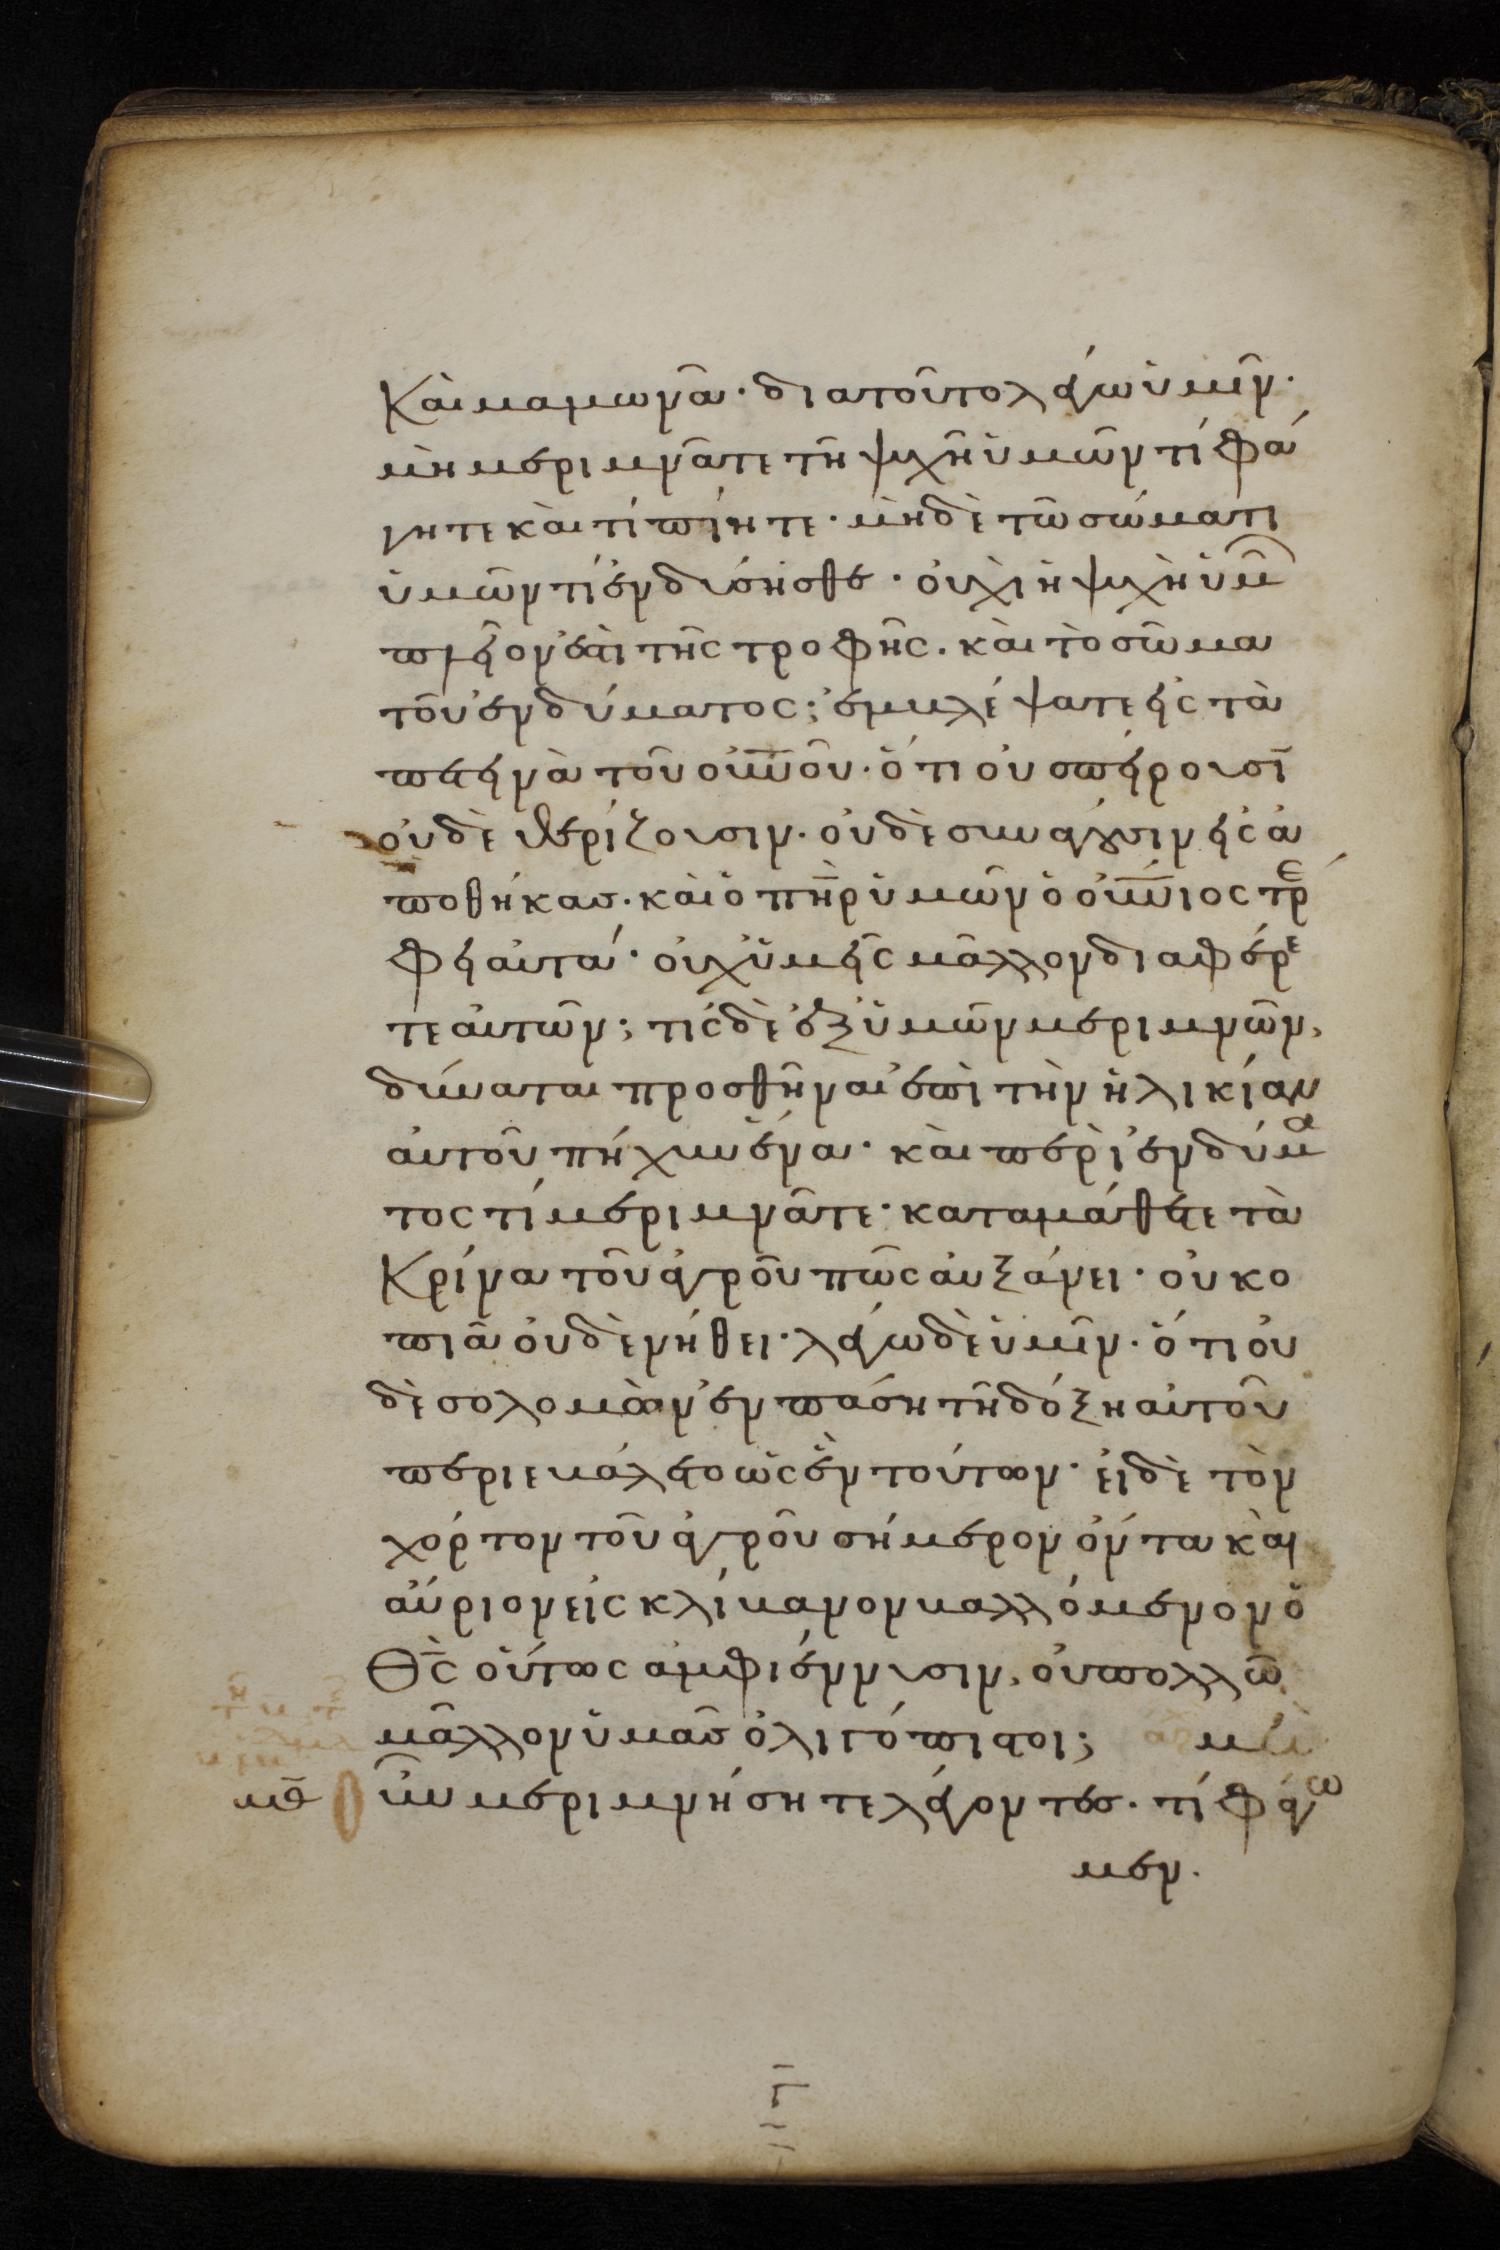 Καὶ μαμωνᾶ· διατοῦτο λέγω ὑμῖν·
μὴ μεριμνᾶτε τῇ ψυχῇ ὑμῶν τί φά
γητε καὶ τί πίητε· μηδὲ τῶ σώματι
ὑμῶν τί ἐνδύσησθε· οὐχὶ ἡ ψυχὴ ὑμῶ
πλεῖον ἐστὶ τῆς τροφῆς. καὶ τὸ σῶμα
τοῦ ἐνδύματος; ἐμβλέψατε εἰς τὰ
πετεινὰ τοῦ οὐνοῦ· ὅτι οὐ σπείρουσῑ
οὐδὲ θερίζουσιν· οὐδὲ συνάγουσιν εἰς ἀ
ποθήκας· καὶ ὁ πηρ ὑμῶν ὁ οὐνιος τρέ
φει αὐτά· οὐχ ὑμεῖς μᾶλλον διαφέρε
τε αὐτῶν; τίς δὲ ἐξ ὑμῶν μεριμνῶν,
δύναται προσθῆναι ἐπὶ τὴν ἡλικίαν
αὐτοῦ πῆχυν ἕνα· καὶ περὶ ἐνδύμα
τος τί μεριμνᾶτε· καταμάθετε τὰ
Κρίνα τοῦ ἀγροῦ πῶς αὐξάνει· οὐ κο
πιᾶ οὐδὲ νήθει· λέγω δὲ ὑμῖν· ὅτι οὐ
δὲ σολομὼν ἐν πάση τῆ δόξη αὐτοῦ
περιεβάλετο ὡς ἓν τούτων· εἰ δὲ τὸν
χόρτον τοῦ ἀγροῦ σήμερον ὄντα καὶ
αὔριον εἰς κλίβανον βαλλόμενον ὁ
Θς οὕτως ἀμφιέννυσιν, οὐ πολλῶ
μᾶλλον ὑμᾶς ὀλιγόπιστοι; μὴ
μθ οὖν μεριμνήσητε λέγοντες· τί φάγω
μεν.